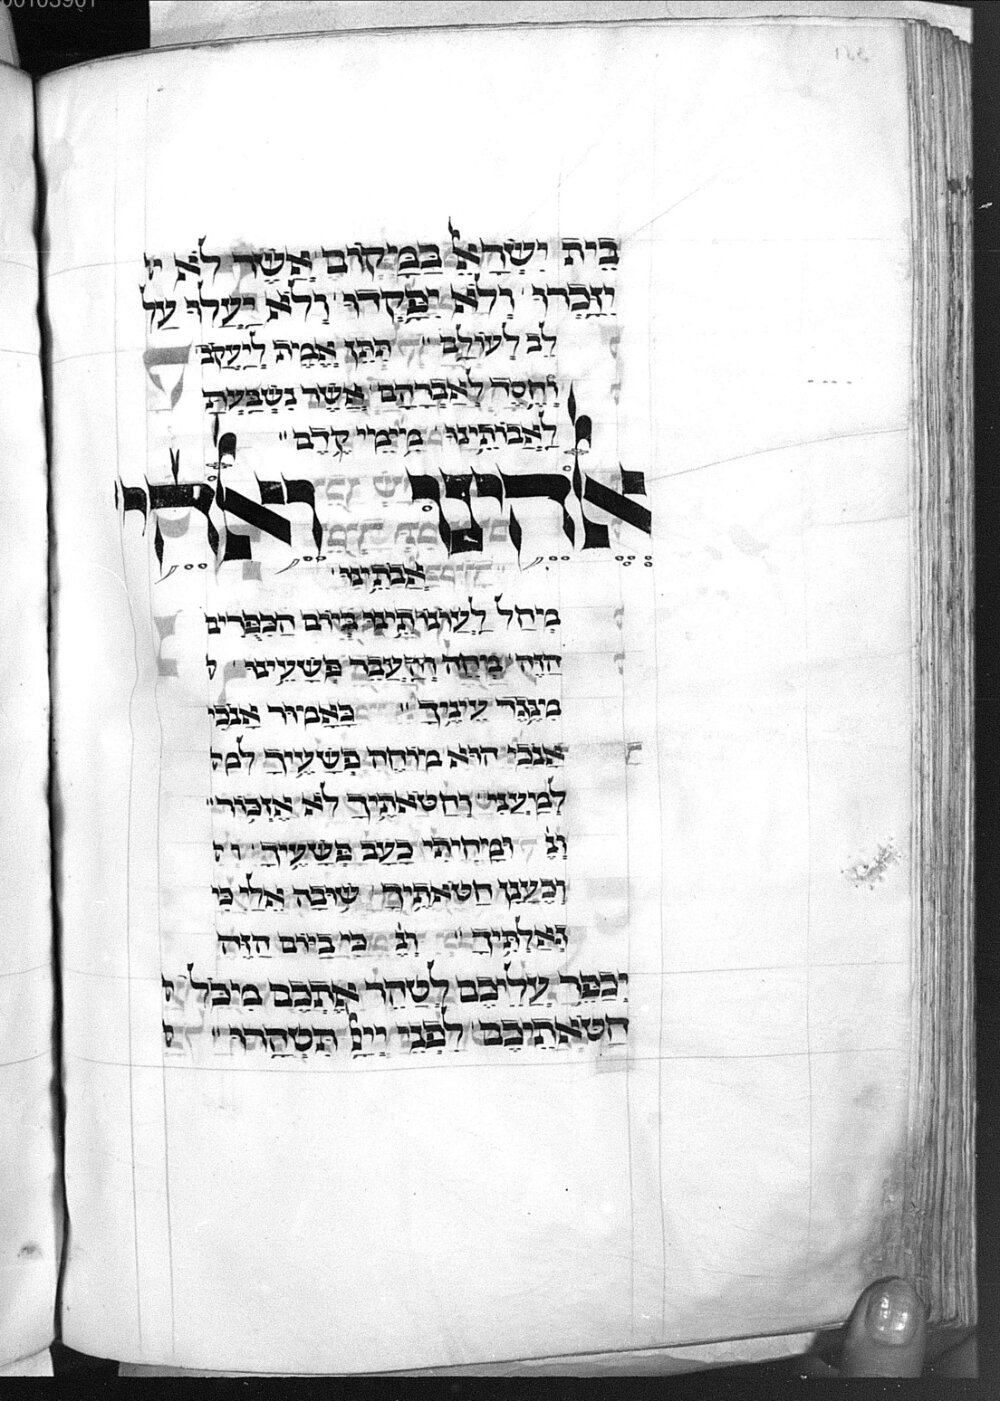 בֵּית יִשְׂרָאֵל בַּמָּקוֹם אֲשֶׁר לֹא י
יִזָּכְרוּ וְלֹא יִפָּקְדוּ וְלֹא יַעֲלוּ עַל
לֵב לְעוֹלָם תִּתֵּן אֱמֶת לְיַעֲקֹב
וְחֶסֶד לְאַבְרָהָם אֲשֶׁר נִשְׁבַּעְתָּ
לַאֲבוֹתֵינוּ מִימֵי קֶדֶם
אלהינו ואלהי
אֲבֹתֵינוּ
מְחַל לַעֲוֹנוֹתֵינוּ בְּיוֹם הַכִּפֻּרִים
הַזֶּה מְחֵה וְהַעֲבֵר פְּשָׁעֵינוּ
מִנֶּגֶד עֵינֶיךָ כָּאָמוּר אָנֹכִי
אָנֹכִי הוּא מוֹחֶה פְשָׁעֶיךָ למע
לְמַעֲנִי וְחַטֹּאתֶיךָ לֹא אֶזְכּוֹר
וְנֶ וּמָחִיתִי כָעָב פְּשָׁעֶיךָ ו
וְכֶעָנָן חַטֹּאתֶיךָ שׁוּבָה אֵלַי כִּי
גְאַלְתִּיךָ וְנֶ כִּי בַיּוֹם הַזֶּה
יְכַפֵּר עֲלֵיכֶם לְטַהֵר אֶתְכֶם מִכֹּל
חַטֹּאתֵיכֶם לִפְנֵי יְיָ תִּטְהָרוּ